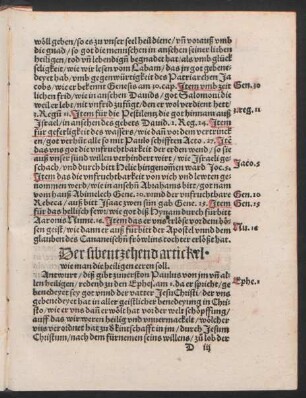 wöll gehen/so es zu vnser seel heil diene/vñ vorauß vmb
die gnad/so got die menschen in ansehen seiner lieben
heiligen/tod vñ lebendigē begnadet hat/als vmb glück
seligkeit/wie wir lesen vom Labam/das in got gebene-
deyet hab/vmb gegenwürtigkeit des Patriarchen Ja
cobs/wie er bekennt Genesis am 30. cap. Item vmb zeit
lichen frid/wie in ansehen Dauids/got Salomoni die
weil er lebt/nit vnfrid zufügt/den er wol verdient hett
3. Regū 11. Item für die Pestilentz die got hinnam auß
Israel/in ansehen des gebets Dauids. 2. Reg. 24. Item
für geferligkeit des wassers/wie dañ vor dem vertrinck
en/got verhüt alle so mit Paulo schifften Acto. 27. Itē
das vns got die vnfruchtbarkeit der erden wend/so sie
auß vnser sünd willen verhindert wirt/wie Israel ge-
schach/vnd durch Helie bit hingenommen ward Jac. 5.
Item das die vnfruchtbarkeit von den weybern gewen
genommen werd/wie in ansehñ Abrahams bitt/got nam
vom hauß Abimelech Gene. 20. vnnd die vnfruchtbare
Rebeca/auff bitt Isaac zwen sün gab Gene. 25. Item
für das hellisch fewr/wie got diß Dynam durch fürbit
Aaronis Nume. 16. Item das er vns erlöß von dem bö-
sen geist/wie dann er auß fürbit der Apostel vnnd den
glauben des Cananeischñ fröwlins tochter erlößt hat.
Der sibentzehend artickel.
wie man die heiligen eeren soll.
Antwurt/diß gibt zuuersten Paulus von jm vñ al
len heiligen/redend zu den Ephes. am 1. da er spricht/ge
benedeyet sey got vnnd der vatter Jesu Christi/der vns
gebenedeyet hat in aller geistlicher benedeyung in Chri-
sto/wie er vns dañ erwölt hat vor der welt schöpffung/
auff das wir weren heilig vnd vnuermackelt/wölcher
vns verordnet hat zu kintschafft in jm/durch Jesum
Christum/nach dem fürnemen seins willens/zů lob der
D iij
Gen. 30
3 reg. 11
Jaco. 5
Gen. 20
Gen. 25
Nu. 16
Ephe. 1